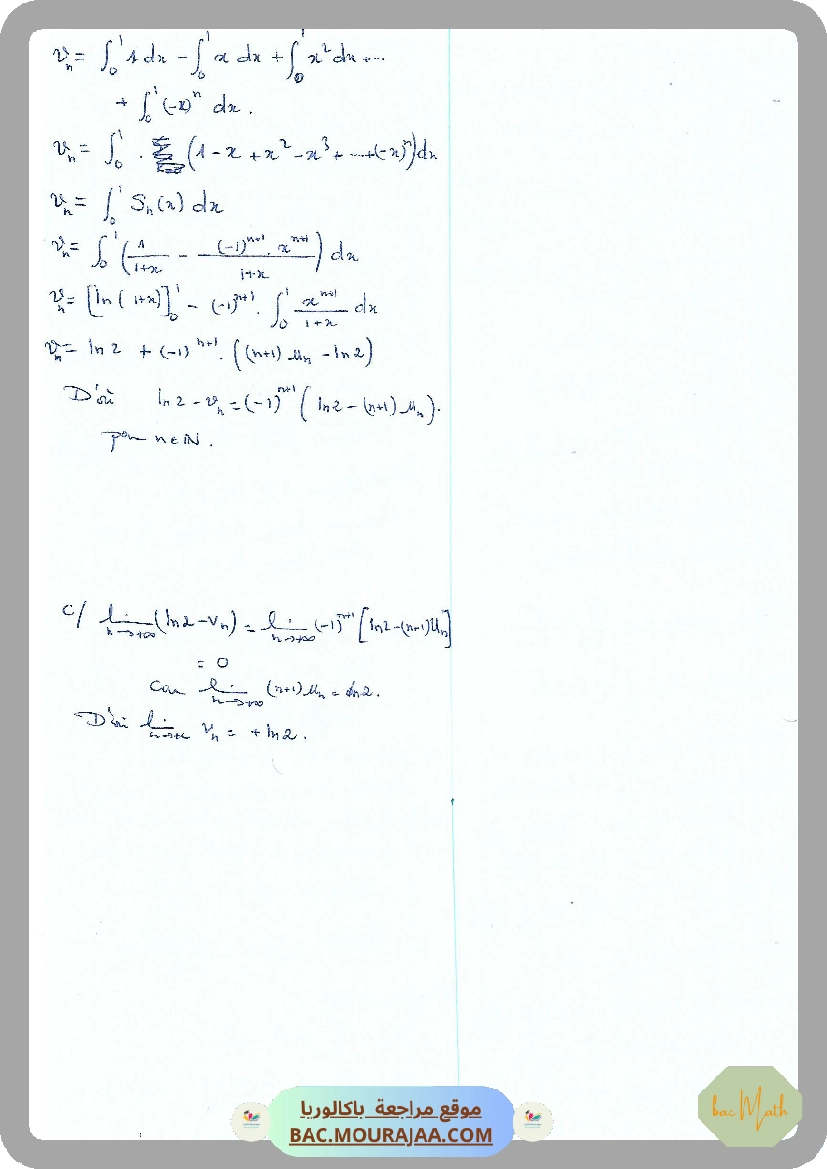 vₙ = ∫₀¹ 1 dx − ∫₀¹ x dx + ∫₀¹ x² dx + ...
+ ∫₀¹ (−x)ⁿ dx .
vₙ = ∫₀¹ . (1 − x + x² − x³ + ... + (−x)ⁿ) dx
vₙ = ∫₀¹ Sₙ(x) dx
vₙ = ∫₀¹ (1/(1+x) − (−1)ⁿ⁺¹ . xⁿ⁺¹/(1+x)) dx
vₙ = [ln(1+x)]₀¹ − (−1)ⁿ⁺¹ . ∫₀¹ xⁿ⁺¹/(1+x) dx
vₙ = ln 2 + (−1)ⁿ⁺¹ . ((n+1) uₙ − ln 2)
D'où ln 2 − vₙ = (−1)ⁿ⁺¹ (ln 2 − (n+1) uₙ).
pour n ∈ ℕ .
C/ lim n→+∞ (ln 2 − Vₙ) = lim n→+∞ (−1)ⁿ⁺¹ [ln 2 − (n+1) Uₙ]
= 0
Car lim n→+∞ (n+1) uₙ = ln 2.
D'où lim n→+∞ vₙ = + ln 2 .
موقع مراجعة باكالوريا
BAC.MOURAJAA.COM
bac Math